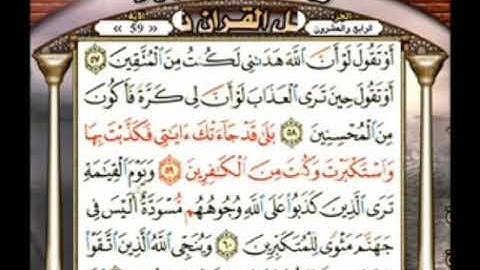 الجزء
الرابع والعشرون
الآية
« 59 »
أَوْ تَقُولَ لَوْ أَنَّ ٱللَّهَ هَدَىٰنِى لَكُنتُ مِنَ ٱلْمُتَّقِينَ ٥٧
أَوْ تَقُولَ حِينَ تَرَى ٱلْعَذَابَ لَوْ أَنَّ لِى كَرَّةً فَأَكُونَ
مِنَ ٱلْمُحْسِنِينَ ٥٨ بَلَىٰ قَدْ جَآءَتْكَ ءَايَٰتِى فَكَذَّبْتَ بِهَا
وَٱسْتَكْبَرْتَ وَكُنتَ مِنَ ٱلْكَٰفِرِينَ ٥٩ وَيَوْمَ ٱلْقِيَٰمَةِ
تَرَى ٱلَّذِينَ كَذَبُوا۟ عَلَى ٱللَّهِ وُجُوهُهُم مُّسْوَدَّةٌ أَلَيْسَ فِى
جَهَنَّمَ مَثْوًى لِّلْمُتَكَبِّرِينَ ٦٠ وَيُنَجِّى ٱللَّهُ ٱلَّذِينَ ٱتَّقَوْا۟